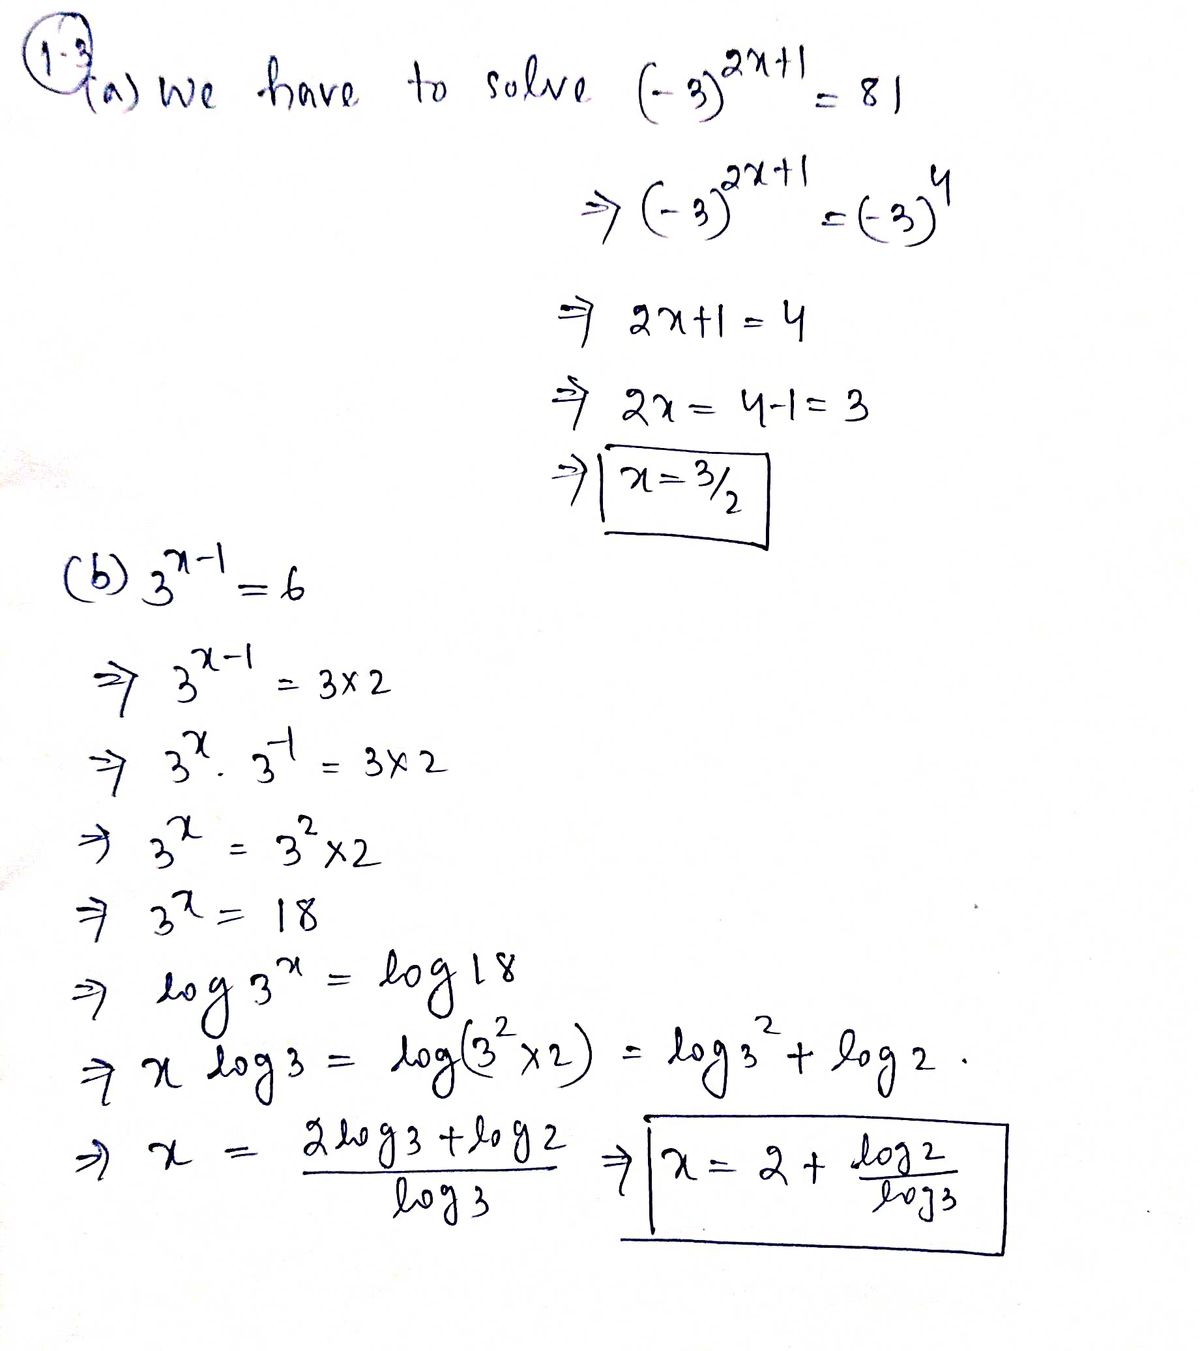 1.3
(a) We have to solve (-3)^{2x+1} = 81
⇒ (-3)^{2x+1} = (-3)^4
⇒ 2x+1 = 4
⇒ 2x = 4-1 = 3
⇒ x = 3/2
(b) 3^{x-1} = 6
⇒ 3^{x-1} = 3×2
⇒ 3^x . 3^{-1} = 3×2
⇒ 3^x = 3^2 ×2
⇒ 3^x = 18
⇒ log 3^x = log 18
⇒ x log 3 = log(3^2 ×2) = log 3^2 + log 2 .
⇒ x = (2 log 3 + log 2)/(log 3) ⇒ x = 2 + (log 2)/(log 3)